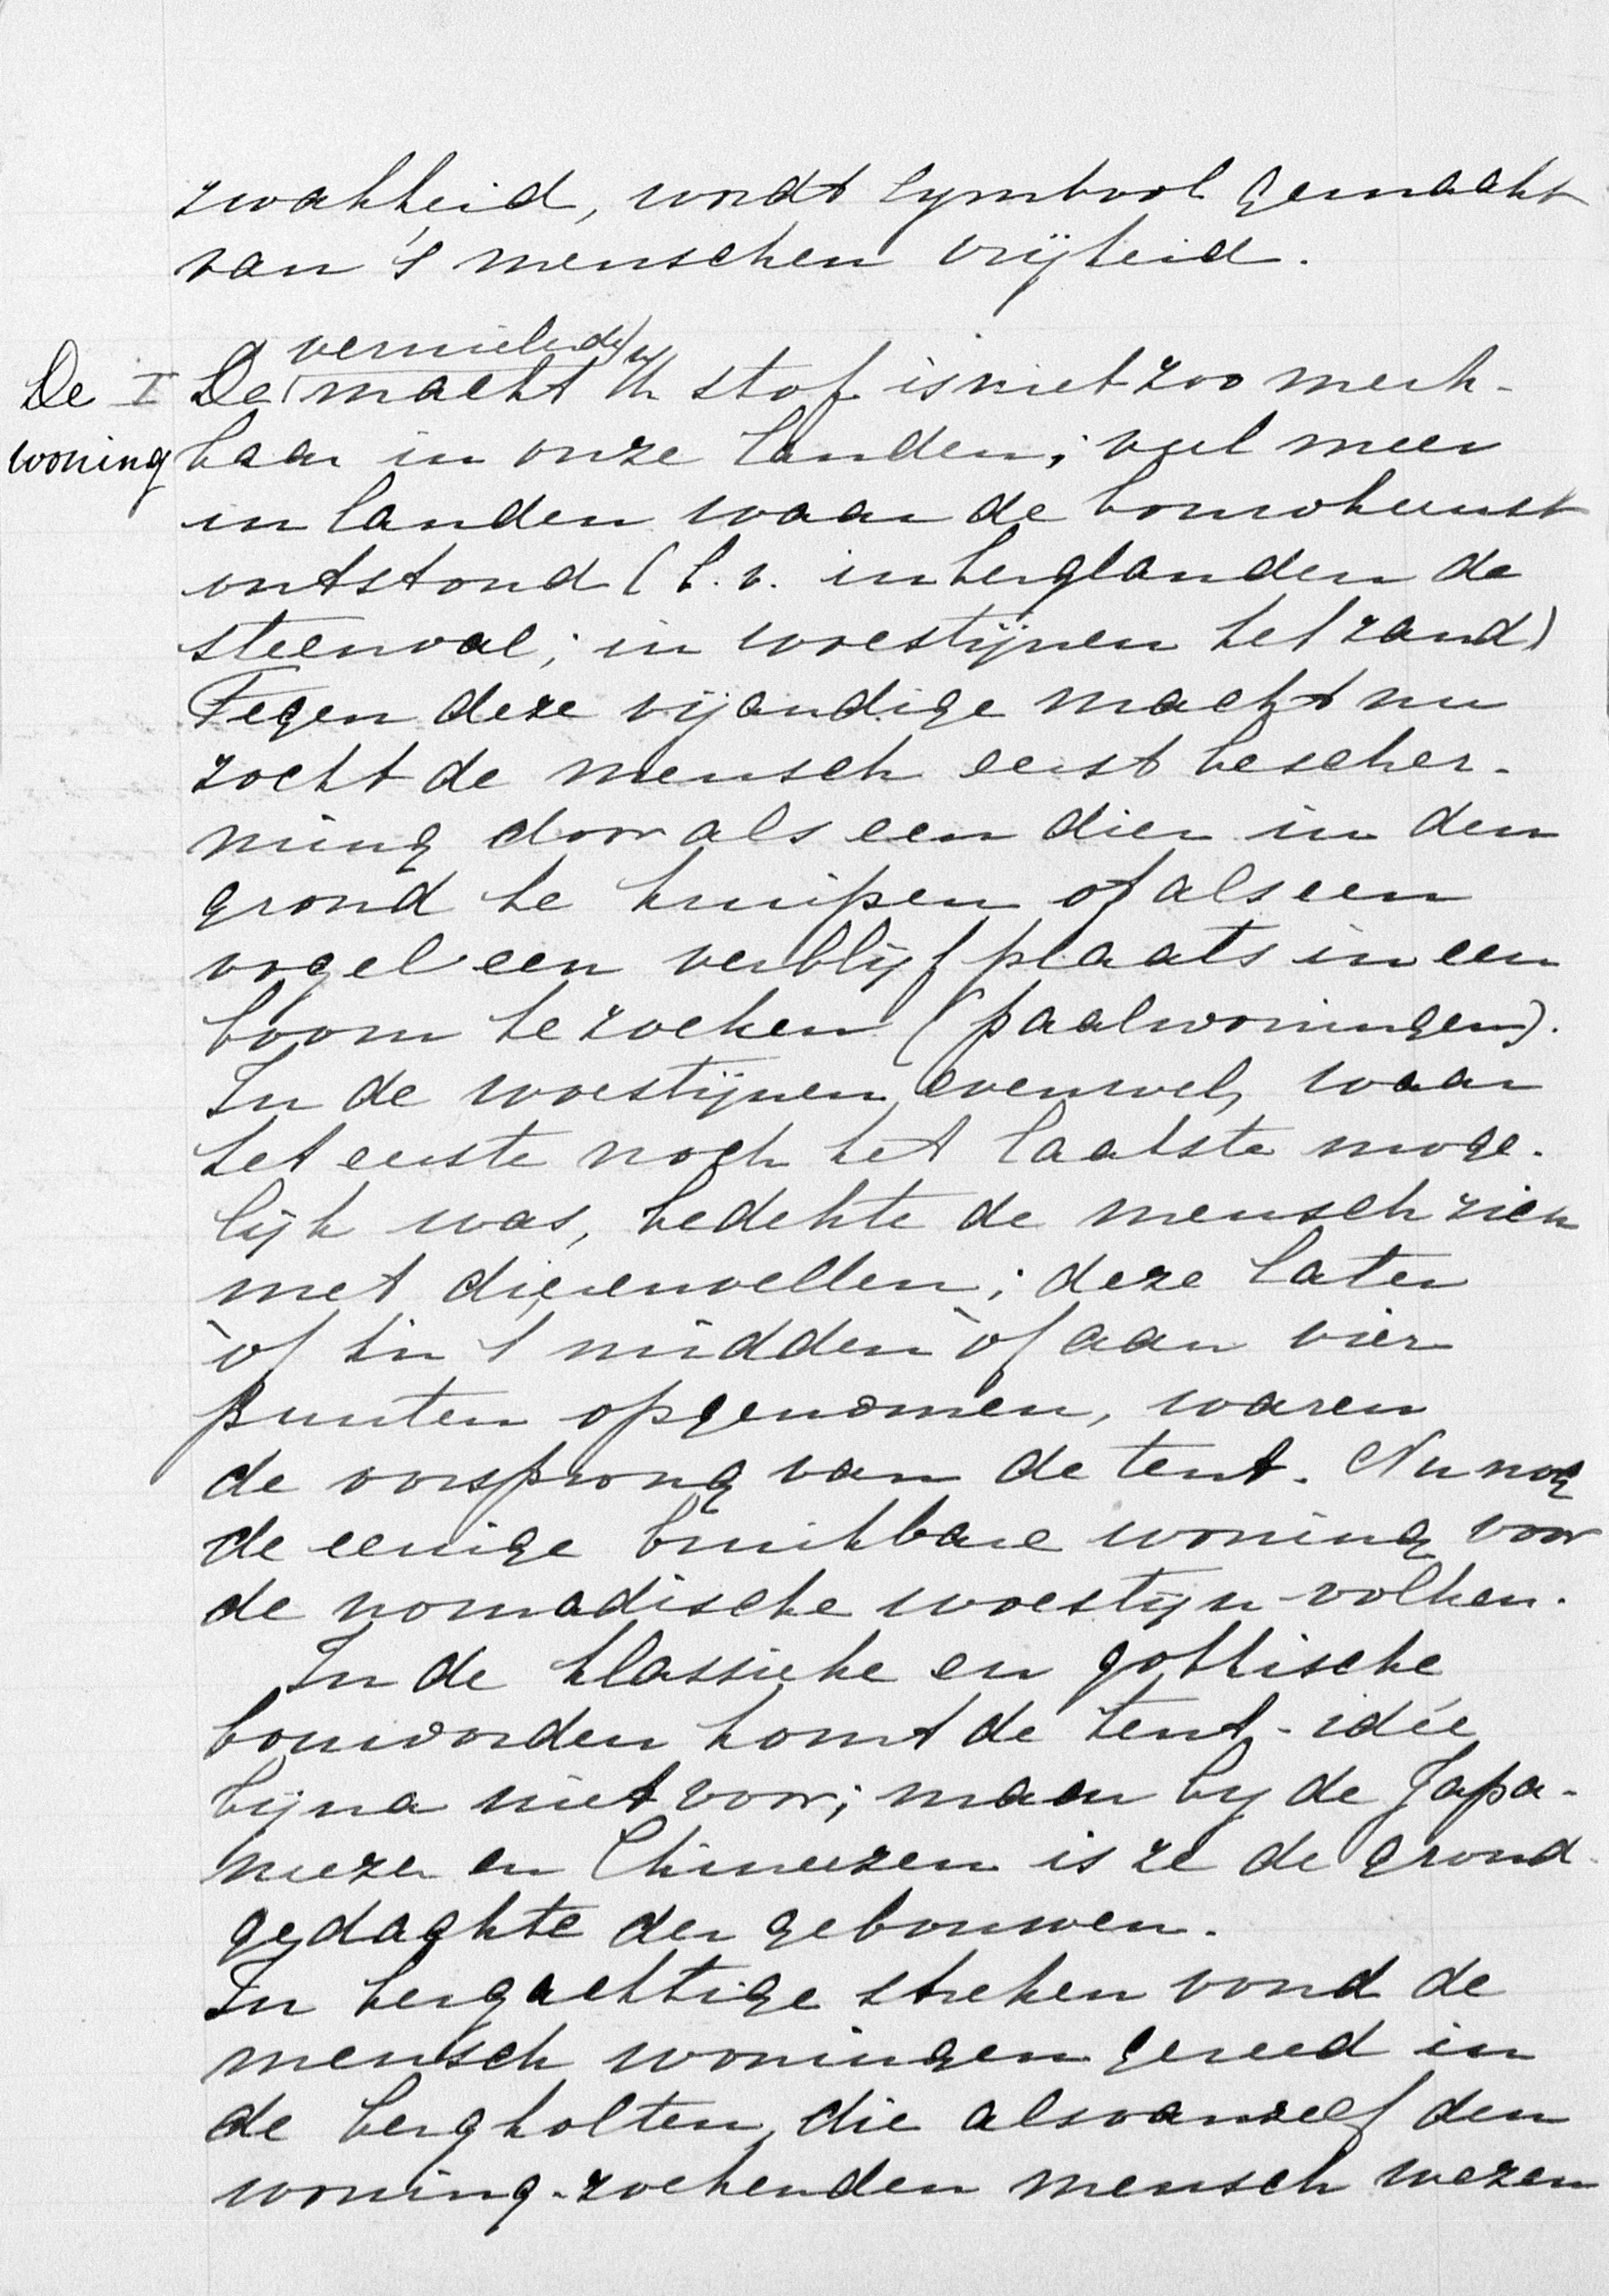 zwakheid, wordt symbool gemaakt
van 's menschen vrijheid.
vernielende
De I De macht der stof is niet zoo merk-
woning baar in onze landen; veel meer
in landen waar de bouwkunst
ontstond (b.v. in berglanden de
steenval; in woestijnen het zand)
Tegen deze vijandige macht nu
zocht de mensch eerst bescher-
ming door als een dier in den
grond te kruipen of als een
vogel een verblijfplaats in een
boom te zoeken (paalwoningen).
In de woestijnen evenwel, waar
het eerste noch het laatste moge-
lijk was, bedekte de mensch zich
met dierenvellen; deze later
òf in 't midden òf aan vier
punten opgenomen, waren
de oorsprong van de tent. Nu nog
de eenige bruikbare woning voor
de nomadische woestijn-volken.
In de klassieke en gothische
bouworden komt de tent-idée
bijna niet voor; maar by de Japa-
neezen en Chineezen is ze de grond-
gedachte der gebouwen.
In bergachtige streken vond de
mensch woningen gereed in
de bergholten, die alsvanzelf den
woning-zoekenden mensch wezen